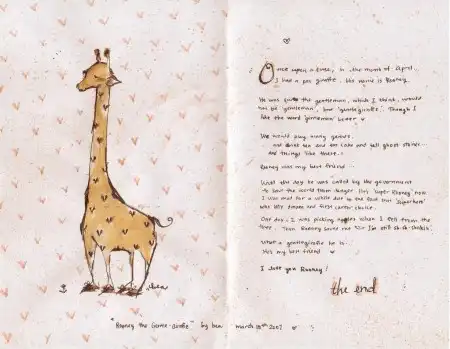 Once upon a time, in the month of April,
I had a pet giraffe. His name is Rooney.
He was quite the gentleman, which I think, would
not be 'gentleman', but 'gentlegiraffe'. Though I
like the word 'gentleman' better
We would play many games.
and drink tea and eat cake and tell ghost stories..
and things like those.
Rooney was my best friend...
Until the day he was called by the government
to save the world from danger. He's 'super Rooney' now
I was mad for a while due to the fact that 'superhero'
was his dream and first career choice.
One day, I was picking apples when I fell from the
tree. Then Rooney saved me
What a gentlegiraffe he is..
He's my best friend
I love you Rooney!
the end
"Rooney the Gentle-giraffe" by
march 18th 2007